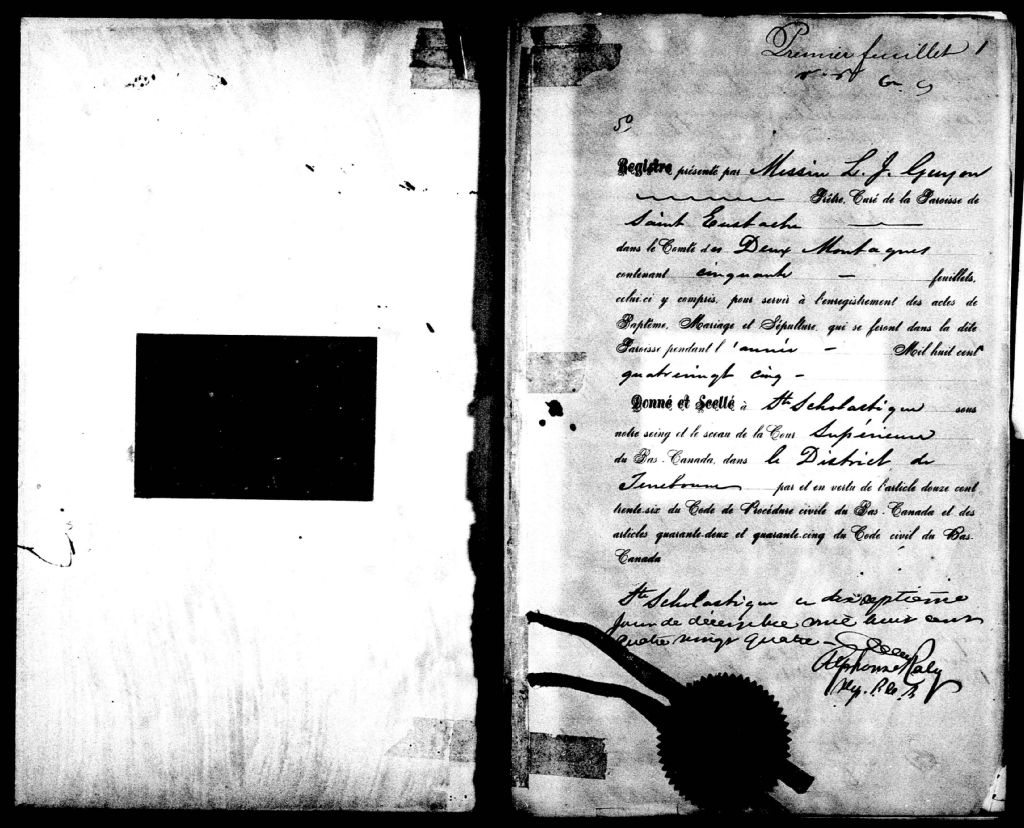 Premier feuillet 1
5º
Registre présenté par Messire L. J. Guyon
Prêtre, Curé de la Paroisse de
Saint Eustache
dans le Comté des Deux Montagnes
contenant cinquante feuillets,
celui-ci y compris, pour servir à l'enregistrement des actes de
Baptême, Mariage et Sépulture, qui se feront dans la dite
Paroisse pendant l'année Mil huit cent
quatrevingt cinq -
Donné et Scellé à Ste Scholastique sous
notre seing et le sceau de la Cour Supérieure
du Bas-Canada, dans le District de
Terrebonne par et en vertu de l'article douze cent
trente-six du Code de Procédure civile du Bas-Canada et des
articles quarante-deux et quarante-cinq du Code civil du Bas-
Canada
Ste Scholastique ce dixseptième
jour de décembre mil huit cent
quatre vingt quatre -
Alphonse